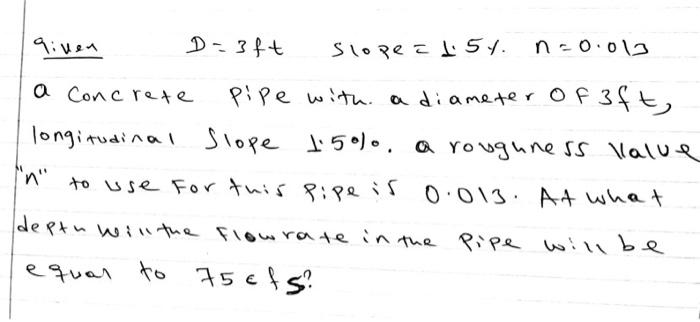 Given D = 3ft Slope = 1.5%. n = 0.013
a concrete pipe with. a diameter of 3ft,
longitudinal Slope 1.5%. a roughness Value
"n" to use For this pipe is 0.013. At what
depth will the flowrate in the pipe will be
equal to 75 cfs?